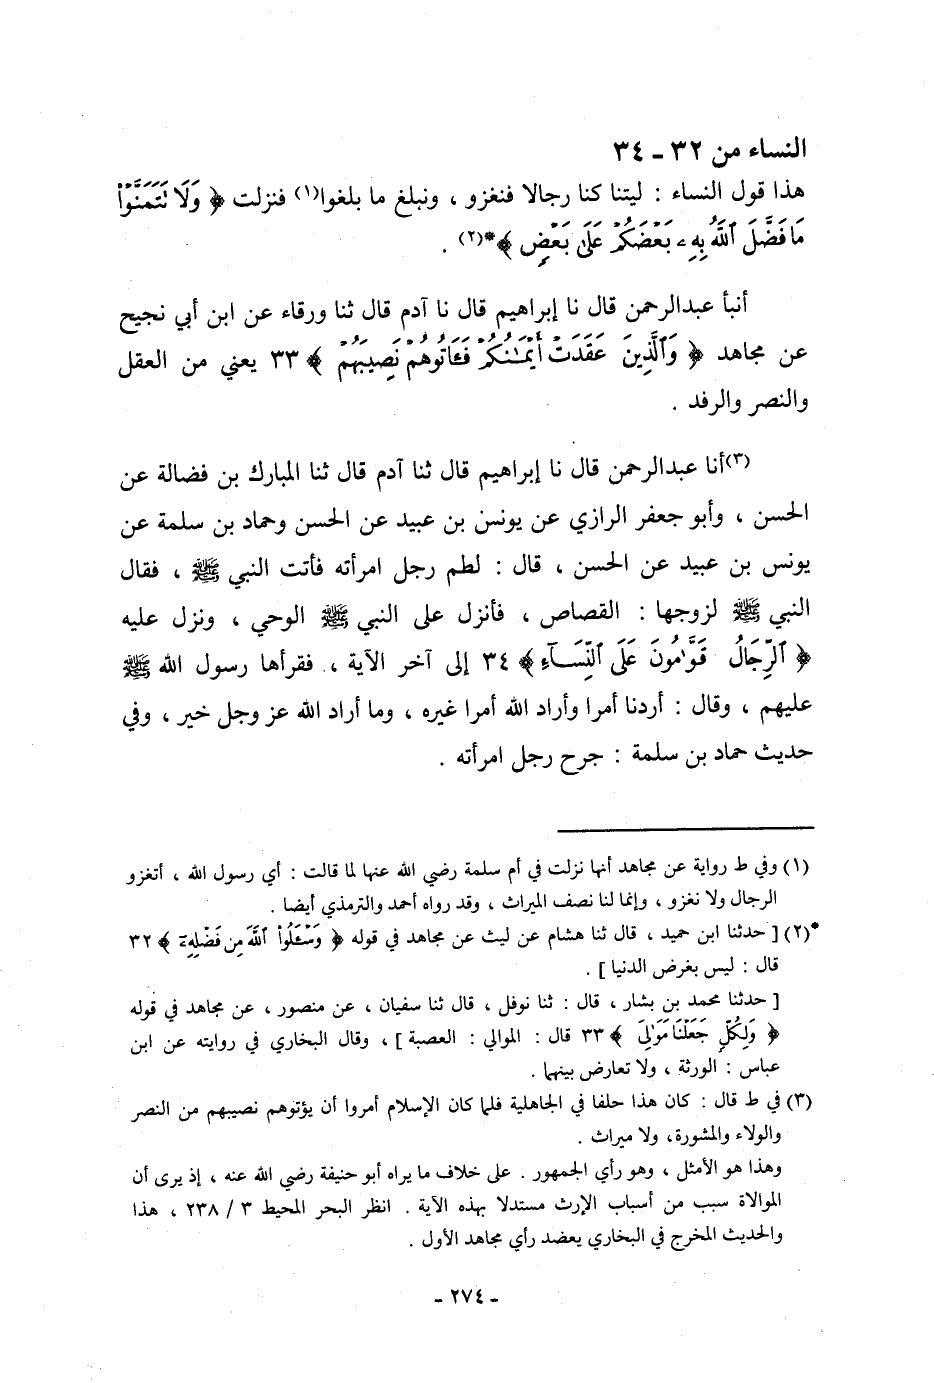 النساء من ٣٢ - ٣٤
هذا قول النساء : ليتنا كنا رجالا فنغزو ، ونبلغ ما بلغوا(١) فنزلت ﴿ وَلَا تَتَمَنَّوْا۟
مَا فَضَّلَ ٱللَّهُ بِهِۦ بَعْضَكُمْ عَلَىٰ بَعْضٍ ﴾*(٢) .
أنبأ عبدالرحمن قال نا إبراهيم قال نا آدم قال ثنا ورقاء عن ابن أبي نجيح
عن مجاهد ﴿ وَٱلَّذِينَ عَقَدَتْ أَيْمَـٰنُكُمْ فَـَٔاتُوهُمْ نَصِيبَهُمْ ﴾ ٣٣ يعني من العقل
والنصر والرفد .
(٣)أنا عبدالرحمن قال نا إبراهيم قال ثنا آدم قال ثنا المبارك بن فضالة عن
الحسن ، وأبو جعفر الرازي عن يونس بن عبيد عن الحسن وحماد بن سلمة عن
يونس بن عبيد عن الحسن ، قال : لطم رجل امرأته فأتت النبي ﷺ ، فقال
النبي ﷺ لزوجها : القصاص ، فأنزل على النبي ﷺ الوحي ، ونزل عليه
﴿ ٱلرِّجَالُ قَوَّٰمُونَ عَلَى ٱلنِّسَآءِ ﴾ ٣٤ إلى آخر الآية ، فقرأها رسول الله ﷺ
عليهم ، وقال : أردنا أمرا وأراد الله أمرا غيره ، وما أراد الله عز وجل خير ، وفي
حديث حماد بن سلمة : جرح رجل امرأته .
(١) وفي ط رواية عن مجاهد أنها نزلت في أم سلمة رضي الله عنها لما قالت : أي رسول الله ، أتغزو
الرجال ولا نغزو ، وإنما لنا نصف الميراث ، وقد رواه أحمد والترمذي أيضا .
*(٢) [ حدثنا ابن حميد ، قال ثنا هشام عن ليث عن مجاهد في قوله ﴿ وَسْـَٔلُوا۟ ٱللَّهَ مِن فَضْلِهِۦٓ ﴾ ٣٢
قال : ليس بغرض الدنيا ] .
[ حدثنا محمد بن بشار ، قال : ثنا نوفل ، قال ثنا سفيان ، عن منصور ، عن مجاهد في قوله
﴿ وَلِكُلٍّ جَعَلْنَا مَوَٰلِىَ ﴾ ٣٣ قال : الموالي : العصبة ] ، وقال البخاري في روايته عن ابن
عباس : الورثة ، ولا تعارض بينهما .
(٣) في ط قال : كان هذا حلفا في الجاهلية فلما كان الإسلام أمروا أن يؤتوهم نصيبهم من النصر
والولاء والمشورة، ولا ميراث .
وهذا هو الأمثل ، وهو رأي الجمهور . على خلاف ما يراه أبو حنيفة رضي الله عنه ، إذ يرى أن
الموالاة سبب من أسباب الإرث مستدلا بهذه الآية . انظر البحر المحيط ٣ / ٢٣٨ ، هذا
والحديث المخرج في البخاري يعضد رأي مجاهد الأول .
- ٢٧٤ -